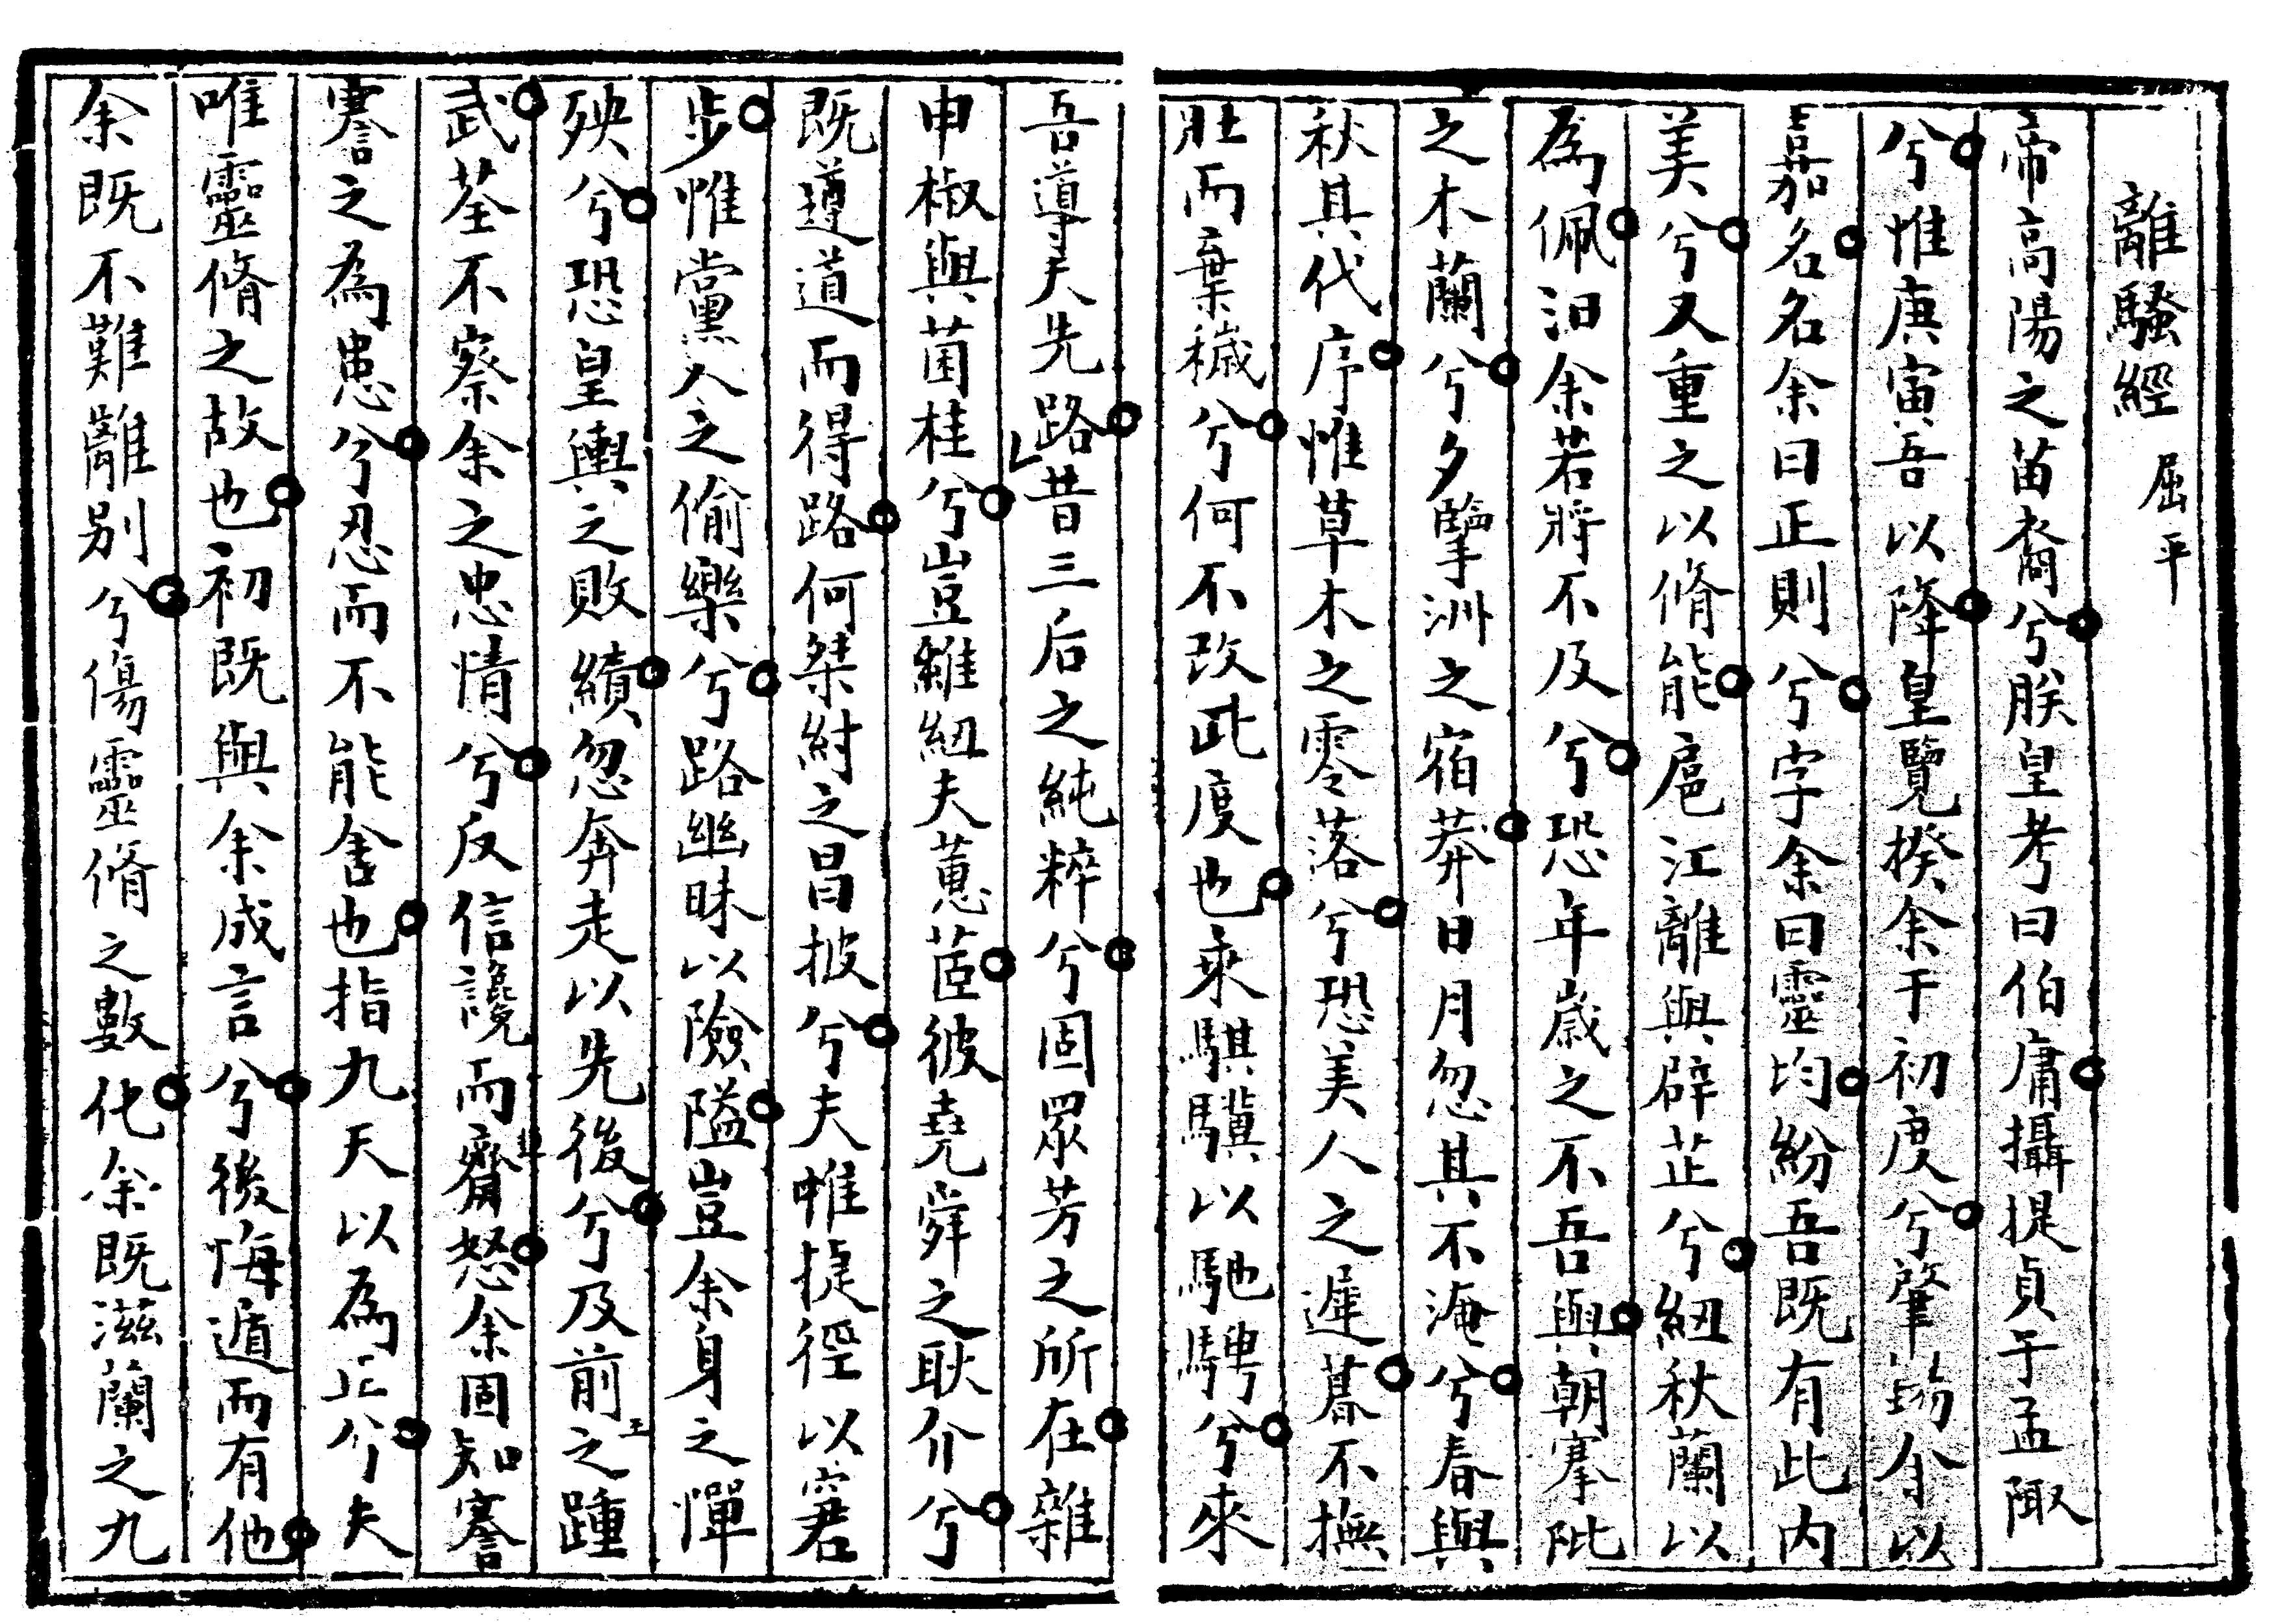 離騷經 屈平
帝高陽之苗裔兮朕皇考曰伯庸攝提貞于孟陬
兮惟庚寅吾以降皇覽揆余于初度兮肇錫余以
嘉名名余曰正則兮字余曰靈均紛吾既有此内
美兮又重之以脩能扈江離與辟芷兮紉秋蘭以
為佩汨余若將不及兮恐年歲之不吾與朝搴阰
之木蘭兮夕擥洲之宿莽日月忽其不淹兮春與
秋其代序惟草木之零落兮恐美人之遲暮不撫
壯而棄穢兮何不改此度也乘騏驥以馳騁兮來
吾導夫先路昔三后之純粹兮固眾芳之所在雜
申椒與菌桂兮豈維紉夫蕙茝彼堯舜之耿介兮
既遵道而得路何桀紂之昌披兮夫惟捷徑以窘
步惟黨人之偷樂兮路幽昧以險隘豈余身之憚
殃兮恐皇輿之敗績忽奔走以先後兮及前王之踵
武荃不察余之忠情兮反信讒而齌怒余固知謇
謇之為患兮忍而不能舍也指九天以為正兮夫
唯靈脩之故也初既與余成言兮後悔遁而有他
余既不難離别兮傷靈脩之數化余既滋蘭之九